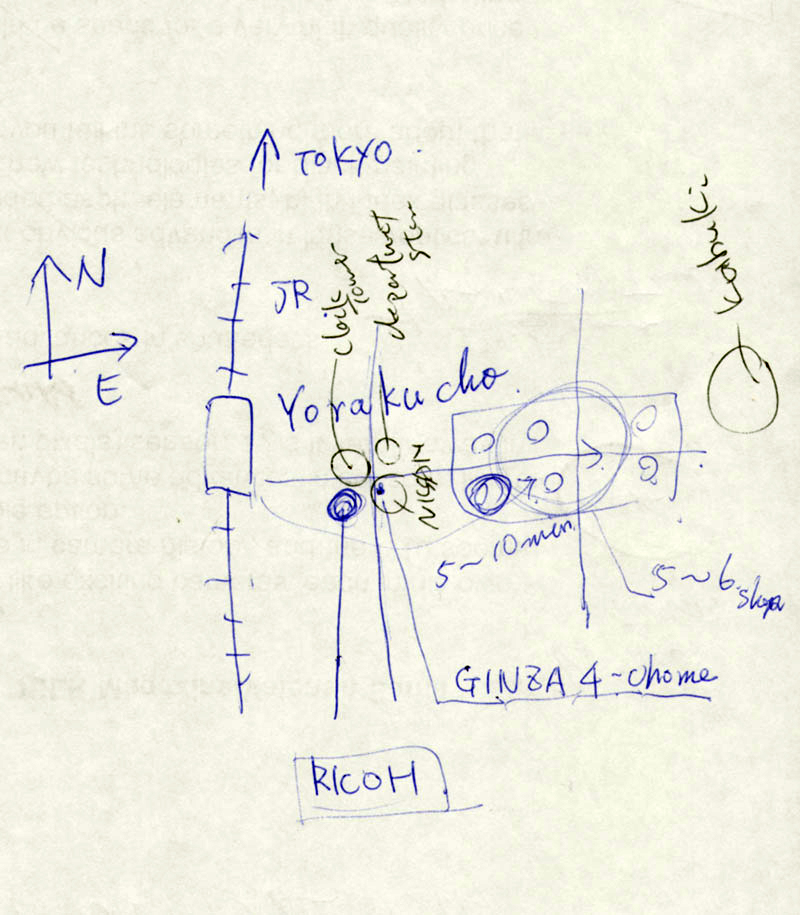 TOKYO
N
E
JR
clock
tower
department
Yorakucho.
Kabuki
NISSAN
5~10 min.
5~6
GINZA 4-chome
RICOH